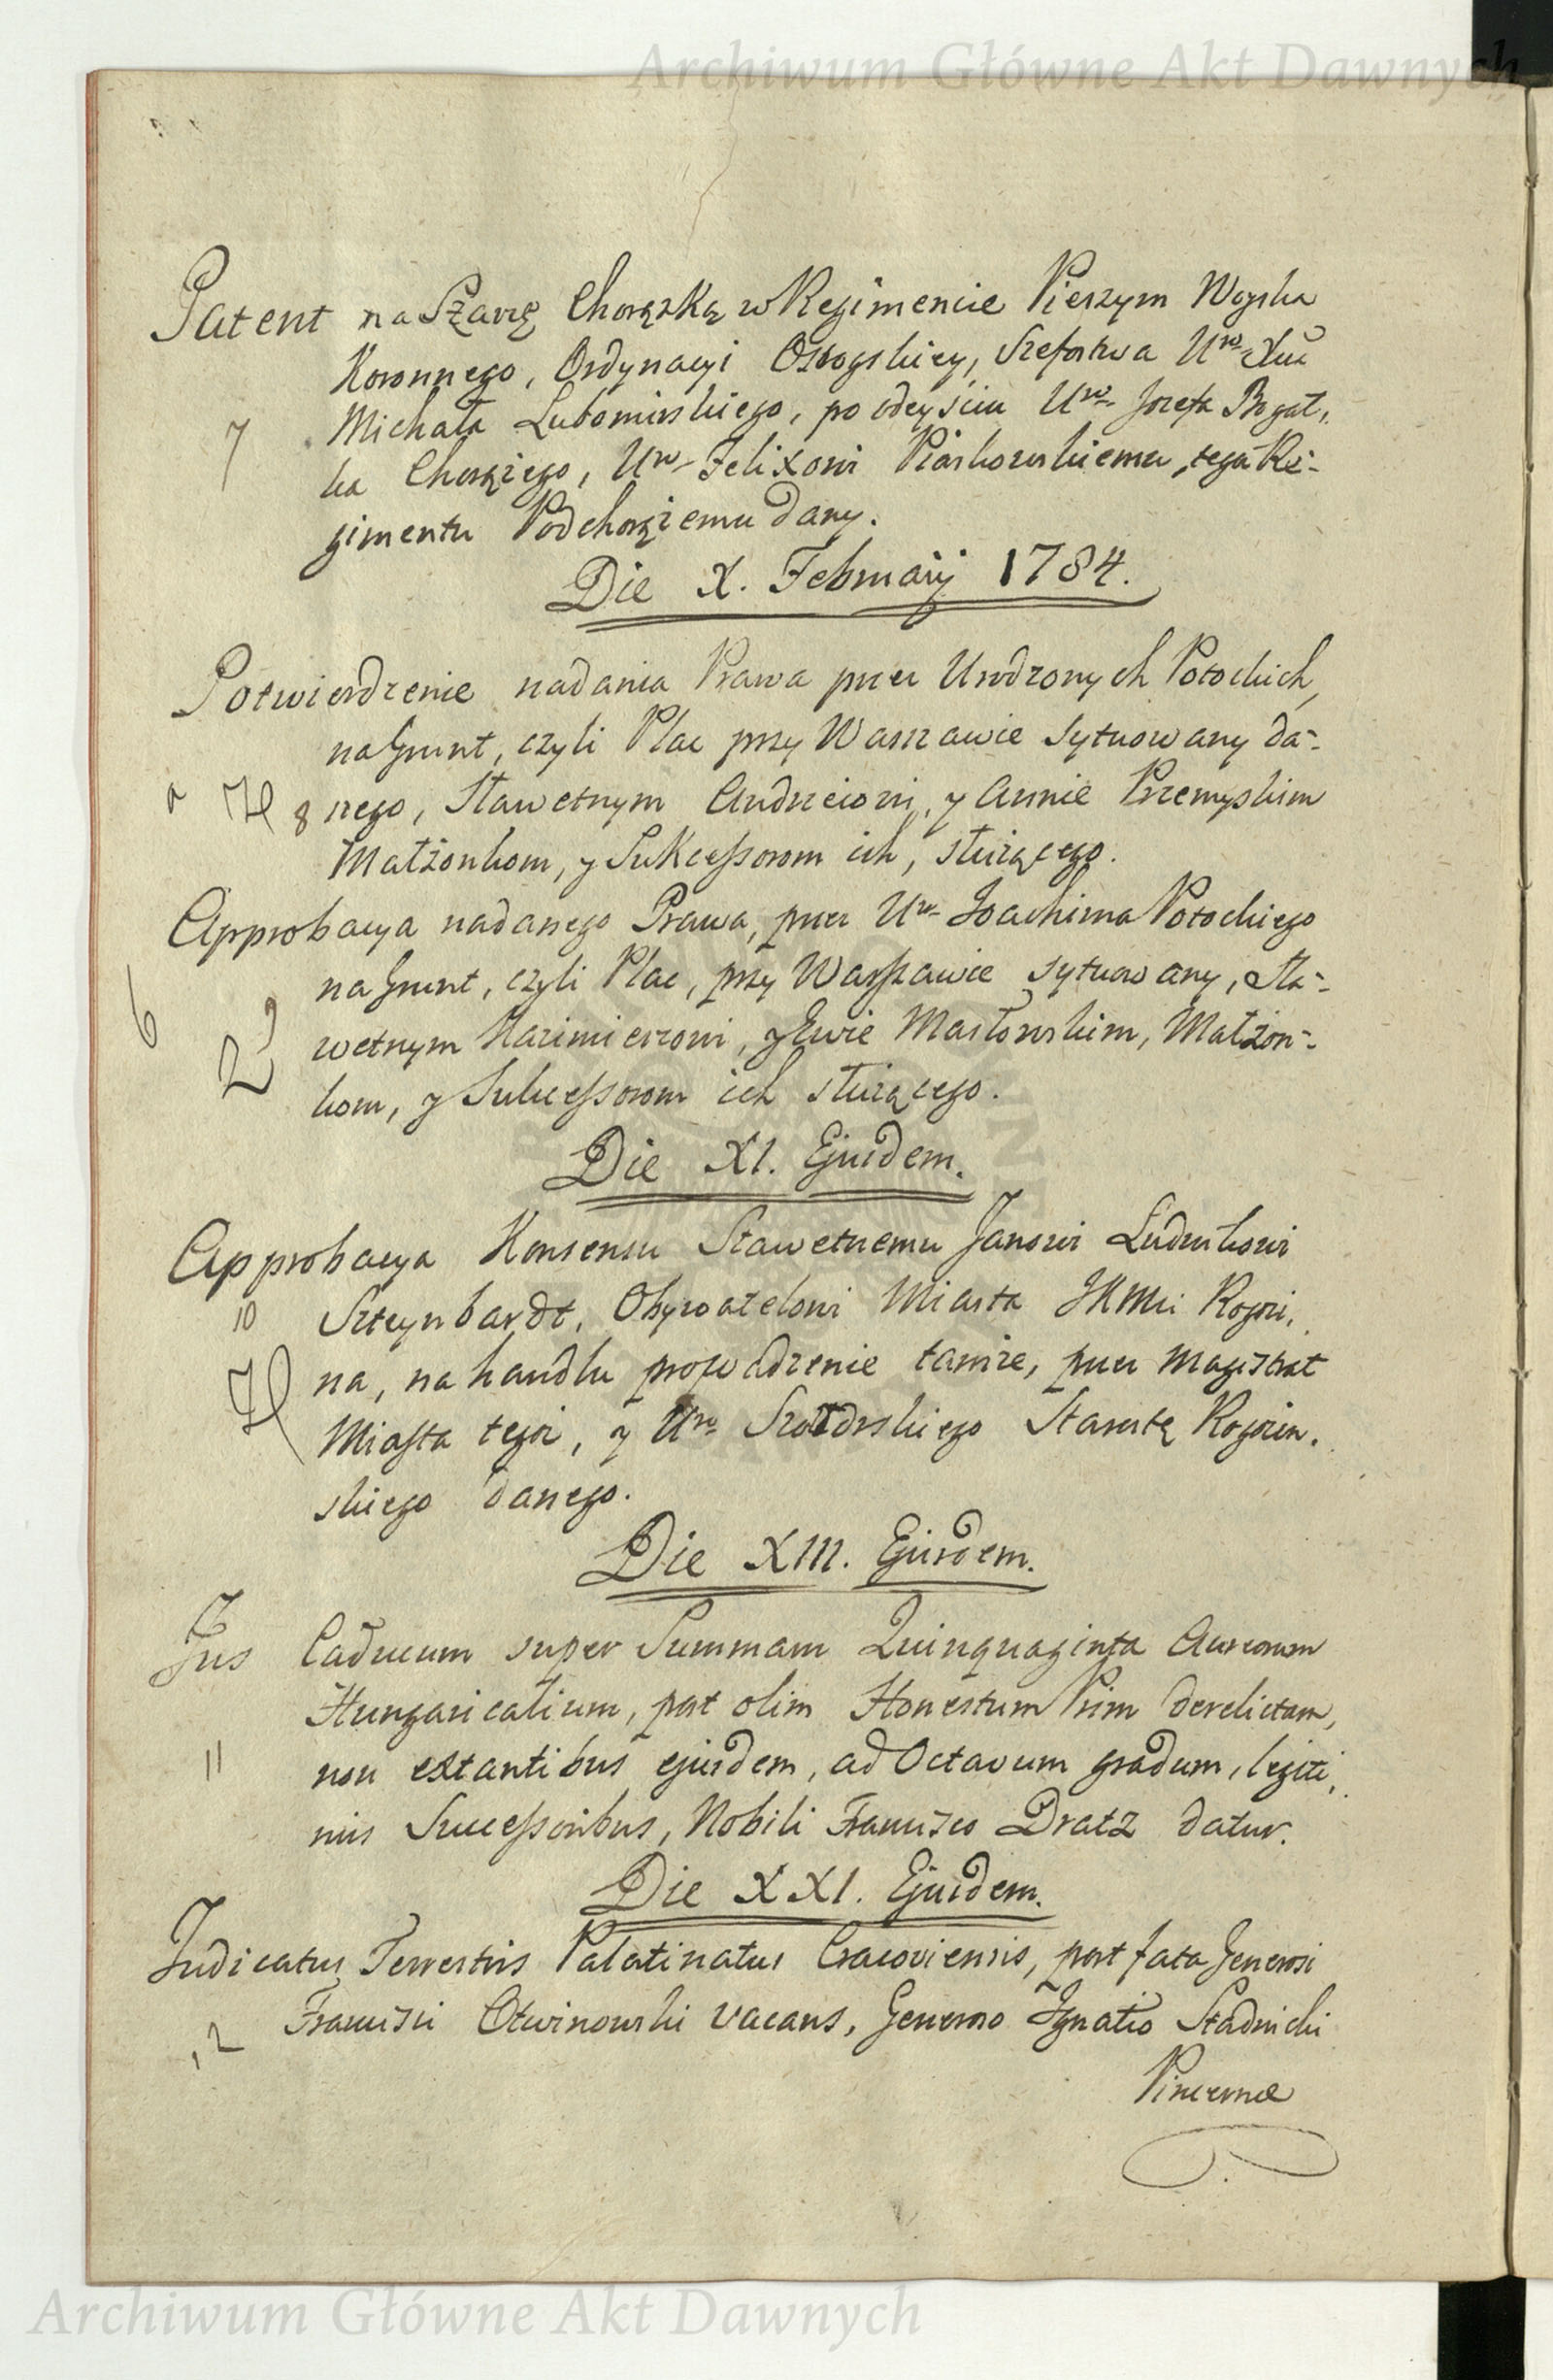 Archiwum Główne Akt Dawnych
Patent na Szarżę Chorążką w Regimencie Pierszym Woyska
Koronnego, Ordynacyi Ostrogskiey, Szefostwa Uro Xcia
7 Michała Lubomirskiego, po odeyściu Uro Jozefa Bogat,
ka Chorążego, Uro Felixowi Piaskowskiemu, tegoż Re-
gimentu Podchorążemu dany.
Die X. Februarij 1784.
Potwierdzenie nadania Prawa przez Urodzonych Potockich,
na Grunt, czyli Plac przy Warszawie sytuowany da-
a H 8 nego, Sławetnym Andrzeiowi, y Annie Przemyskim
Małżonkom, y Sukcessorom ich, służącego.
Approbacya nadanego Prawa, przez Uro Joachima Potockiego
na Grunt, czyli Plac, przy Warszawie sytuowany, Sła-
b 9 wetnym Kazimierzowi, y Ewie Masłowskim, Małżon-
kom, y Sukcessorom ich służącego.
Die XI. Ejusdem.
Approbacya Konsensu Sławetnemu Janowi Ludwikowi
10 Szteynbardt, Obywatelowi Miasta JKMci Rogozi,
H na, na handlu prowadzenie tamże, przez Magistrat
Miasta tegoż, y Uro Szołdrskiego Starostę Rogozin.
skiego danego.
Die XIII. Ejusdem.
Jus Caducum super Summam Quinquaginta Aureorum
Hungaricalium, post olim Honestum Prim derelictam,
11 non extantibus ejusdem, ad Octavum gradum, legiti,
mis Successoribus, Nobili Francisco Dratz datur.
Die XXI. Ejusdem.
Judicatus Terrestris Palatinatus Cracoviensis, post fata Generosi
12 Francisci Otwinowski vacans, Generoso Ignatio Stadnicki
Pincernæ
Archiwum Główne Akt Dawnych